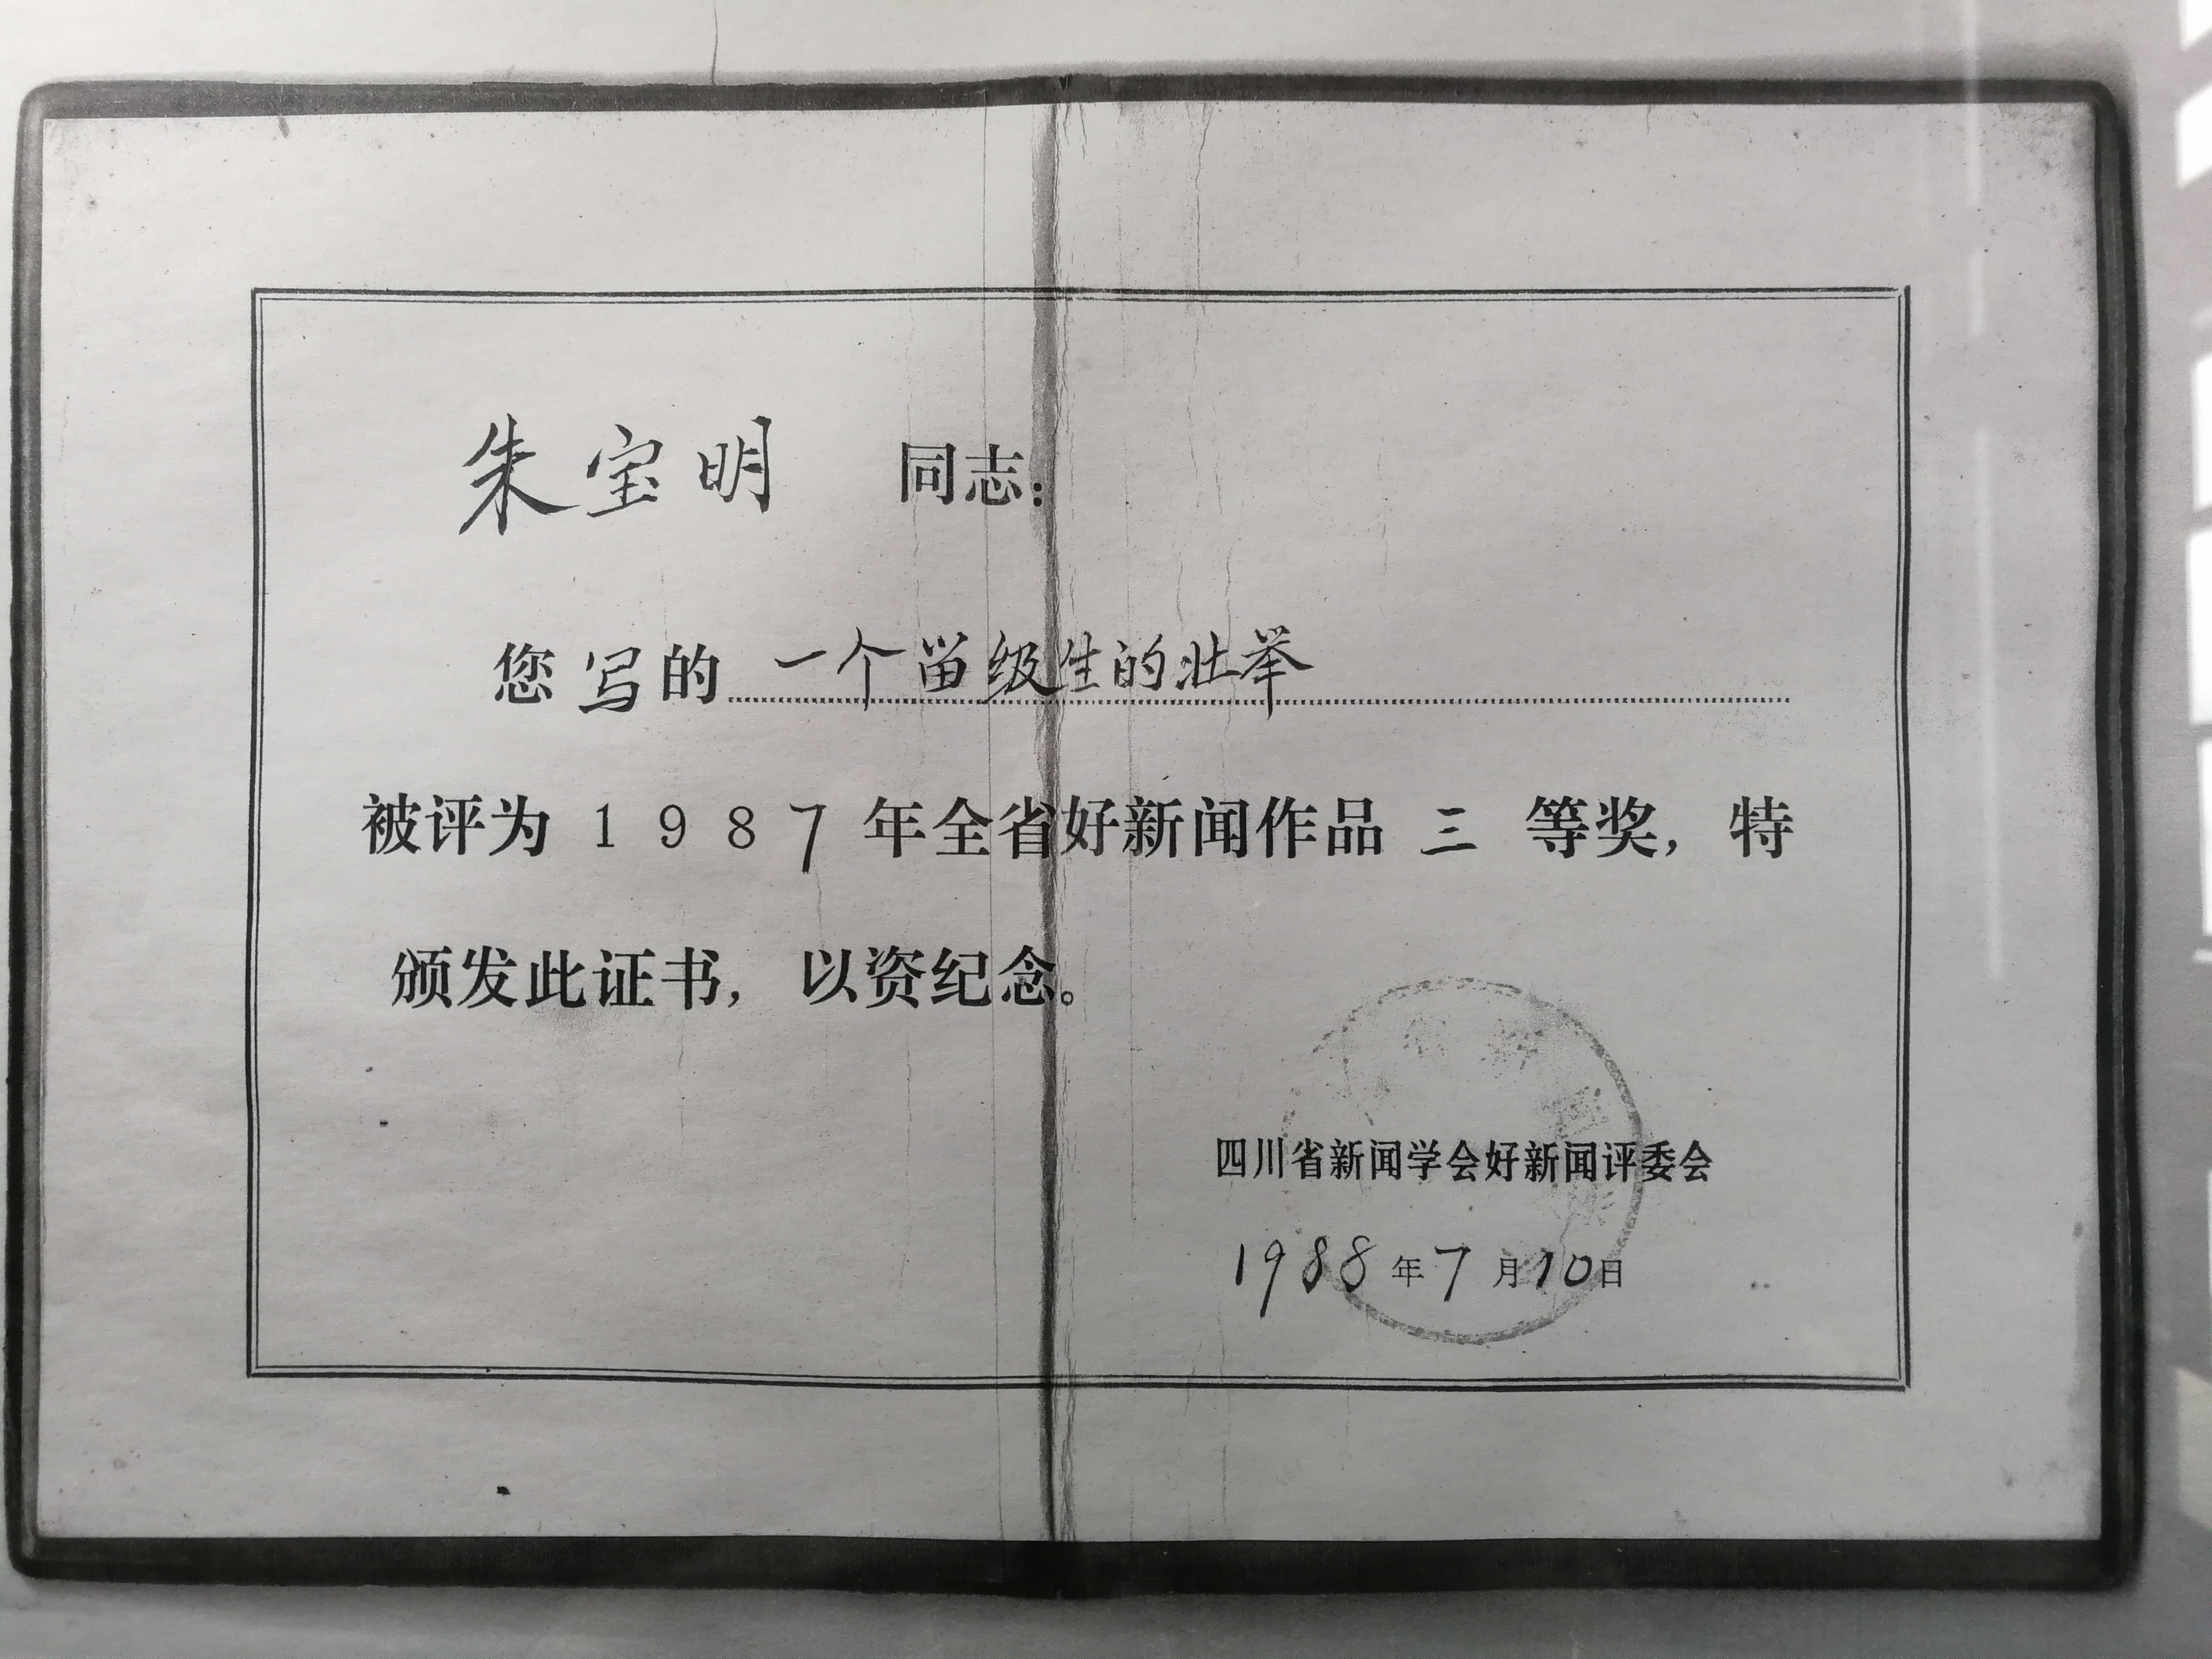 朱宝明 同志：
您写的 一个留级生的壮举
被评为 1987 年全省好新闻作品 三 等奖，特
颁发此证书，以资纪念。
四川省新闻学会好新闻评委会
1988年7月10日